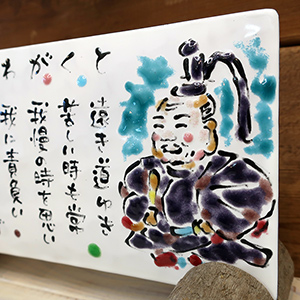 と
遠き道ゆき
く
苦しい時も常
が
我慢の時を思い
わ
我に責負い